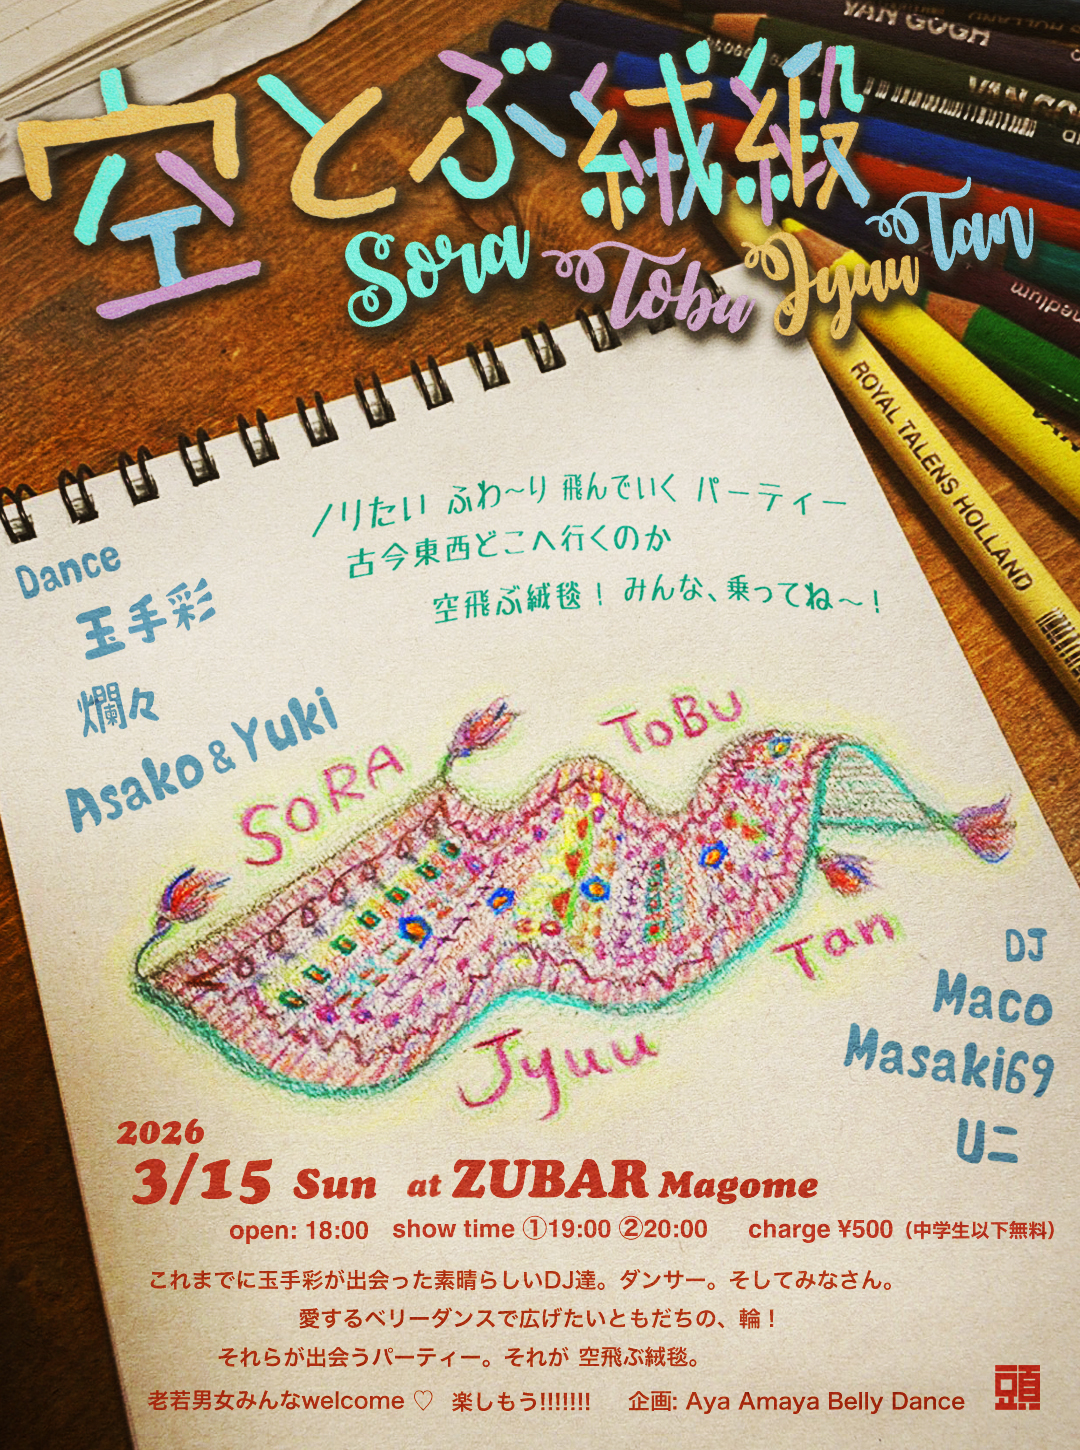 空とぶ絨緞
Sora Tobu Jyuu Tan
VAN GOGH
VAN GO
medium
ROYAL TALENS HOLLAND
ノリたい ふわ〜り 飛んでいく パーティー
古今東西どこへ行くのか
空飛ぶ絨毯！ みんな、乗ってね〜！
Dance
玉手彩
爛々
Asako & Yuki
SORA
ToBu
Jyuu
Tan
DJ
Maco
Masaki69
Uニ
2026
3/15 Sun at ZUBAR Magome
open: 18:00 show time ①19:00 ②20:00 charge ¥500（中学生以下無料）
これまでに玉手彩が出会った素晴らしいDJ達。ダンサー。そしてみなさん。
愛するベリーダンスで広げたいともだちの、輪！
それらが出会うパーティー。それが 空飛ぶ絨毯。
老若男女みんなwelcome ♡ 楽しもう!!!!!!! 企画: Aya Amaya Belly Dance
頭